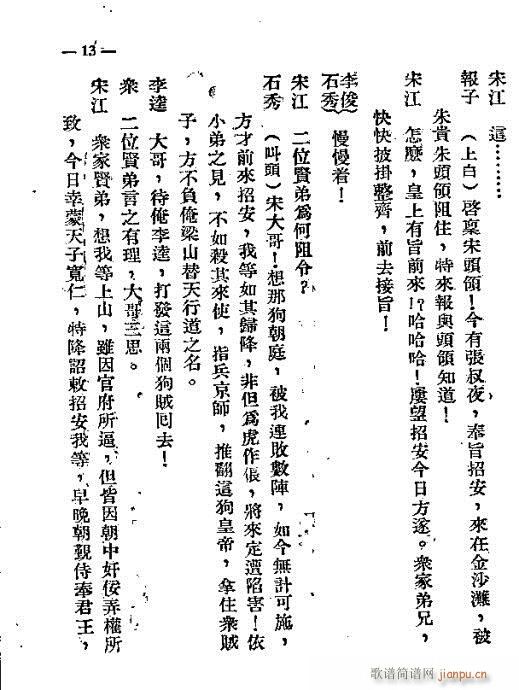 —13—
宋江　這………
報子　（上白）啓稟宋頭領！今有張叔夜，奉旨招安，來在金沙灘，被
朱貴朱頭領阻住，特來報與頭領知道！
宋江　怎麼，皇上有旨前來！？哈哈哈！屢望招安今日方遂。衆家弟兄，
快快披掛整齊，前去接旨！
李俊
石秀　慢慢着！
宋江　二位賢弟爲何阻令？
石秀　（叫頭）宋大哥！想那狗朝庭，被我連敗數陣，如今無計可施，
方才前來招安，我等如其歸降，非但爲虎作倀，將來定遭陷害！依
小弟之見，不如殺其來使，指兵京師，推翻這狗皇帝，拿住衆賊
子，方不負俺梁山替天行道之名。
李逵　大哥，待俺李逵，打發這兩個狗賊囘去！
衆　二位賢弟言之有理，大哥三思。
宋江　衆家賢弟，想我等上山，雖因官府所逼，但皆因朝中奸佞弄權所
致，今日幸蒙天子寬仁，特降詔敕招安我等，早晚朝覲侍奉君王，
歌谱简谱网
jianpu.cn